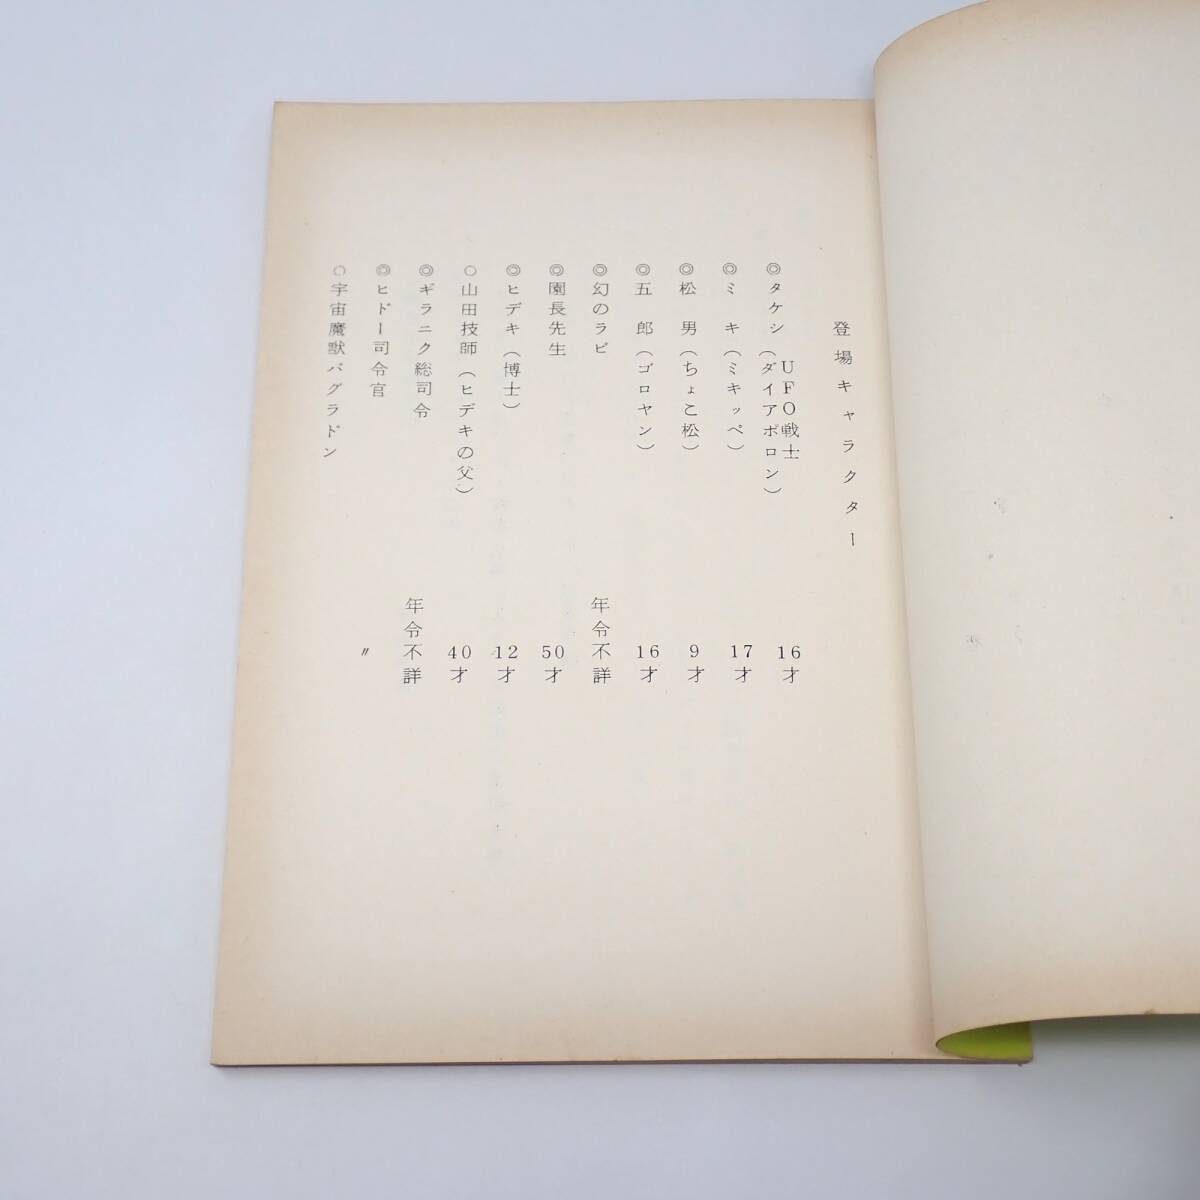 登場キャラクター
UFO戦士
◎タケシ(ダイアポロン) 16才
◎ミキ(ミキッペ) 17才
◎松男(ちょこ松) 9才
◎五郎(ゴロヤン) 16才
◎幻のラビ 年令不詳
◎園長先生 50才
◎ヒデキ(博士) 12才
○山田技師(ヒデキの父) 40才
◎ギラニク総司令 年令不詳
◎ヒドー司令官 〃
○宇宙魔獣バグラドン